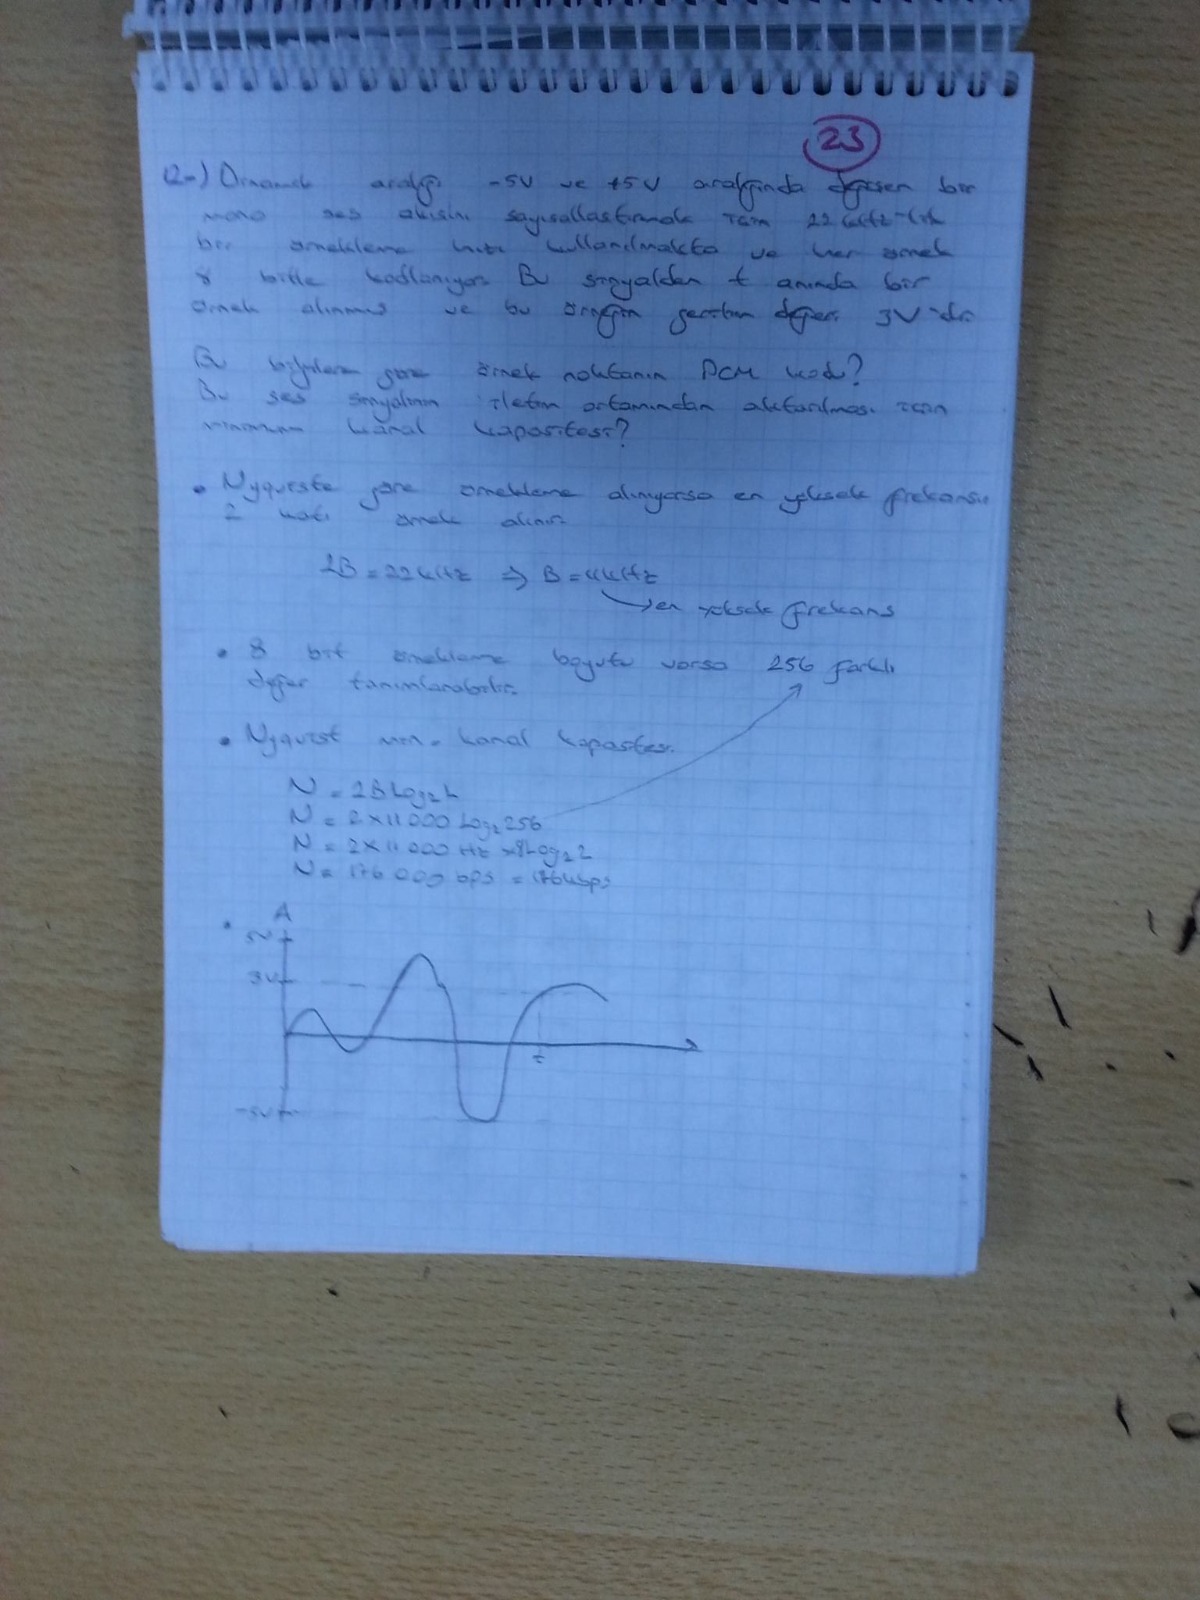 23
12-) Dinamik aralığı -5V ve +5V aralığında değişen bir
mono ses akışını sayısallaştırmak için 22 kHz-lik
bir örnekleme hızı kullanılmakta ve her örnek
8 bitle kodlanıyor. Bu sinyalden t anında bir
örnek alınmış ve bu örneğin gerilim değeri 3V'dir
Bu bilgilere göre örnek noktanın PCM kodu?
Bu ses sinyalinin iletim ortamından aktarılması için
minimum kanal kapasitesi?
• Nyquiste göre örnekleme alınıyorsa en yüksek frekansın
2 katı örnek alınır
2B = 22 kHz ⇒ B = 11 kHz
→ en yüksek frekans
• 8 bit örnekleme boyutu varsa 256 farklı
değer tanımlanabilir.
• Nyquist min. kanal kapasitesi
N = 2B Log₂L
N = 2 x 11 000 Log₂256
N = 2 x 11 000 Hz x 8 Log₂2
N = 176 000 bps = 176 kbps
• A
5V
3V
t
-5V